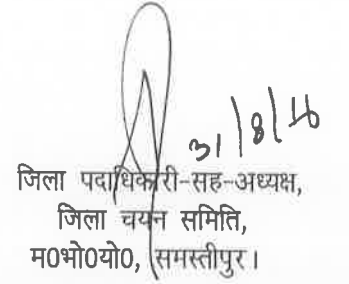 31/8/16
जिला पदाधिकारी-सह-अध्यक्ष,
जिला चयन समिति,
म0भो0यो0, समस्तीपुर।